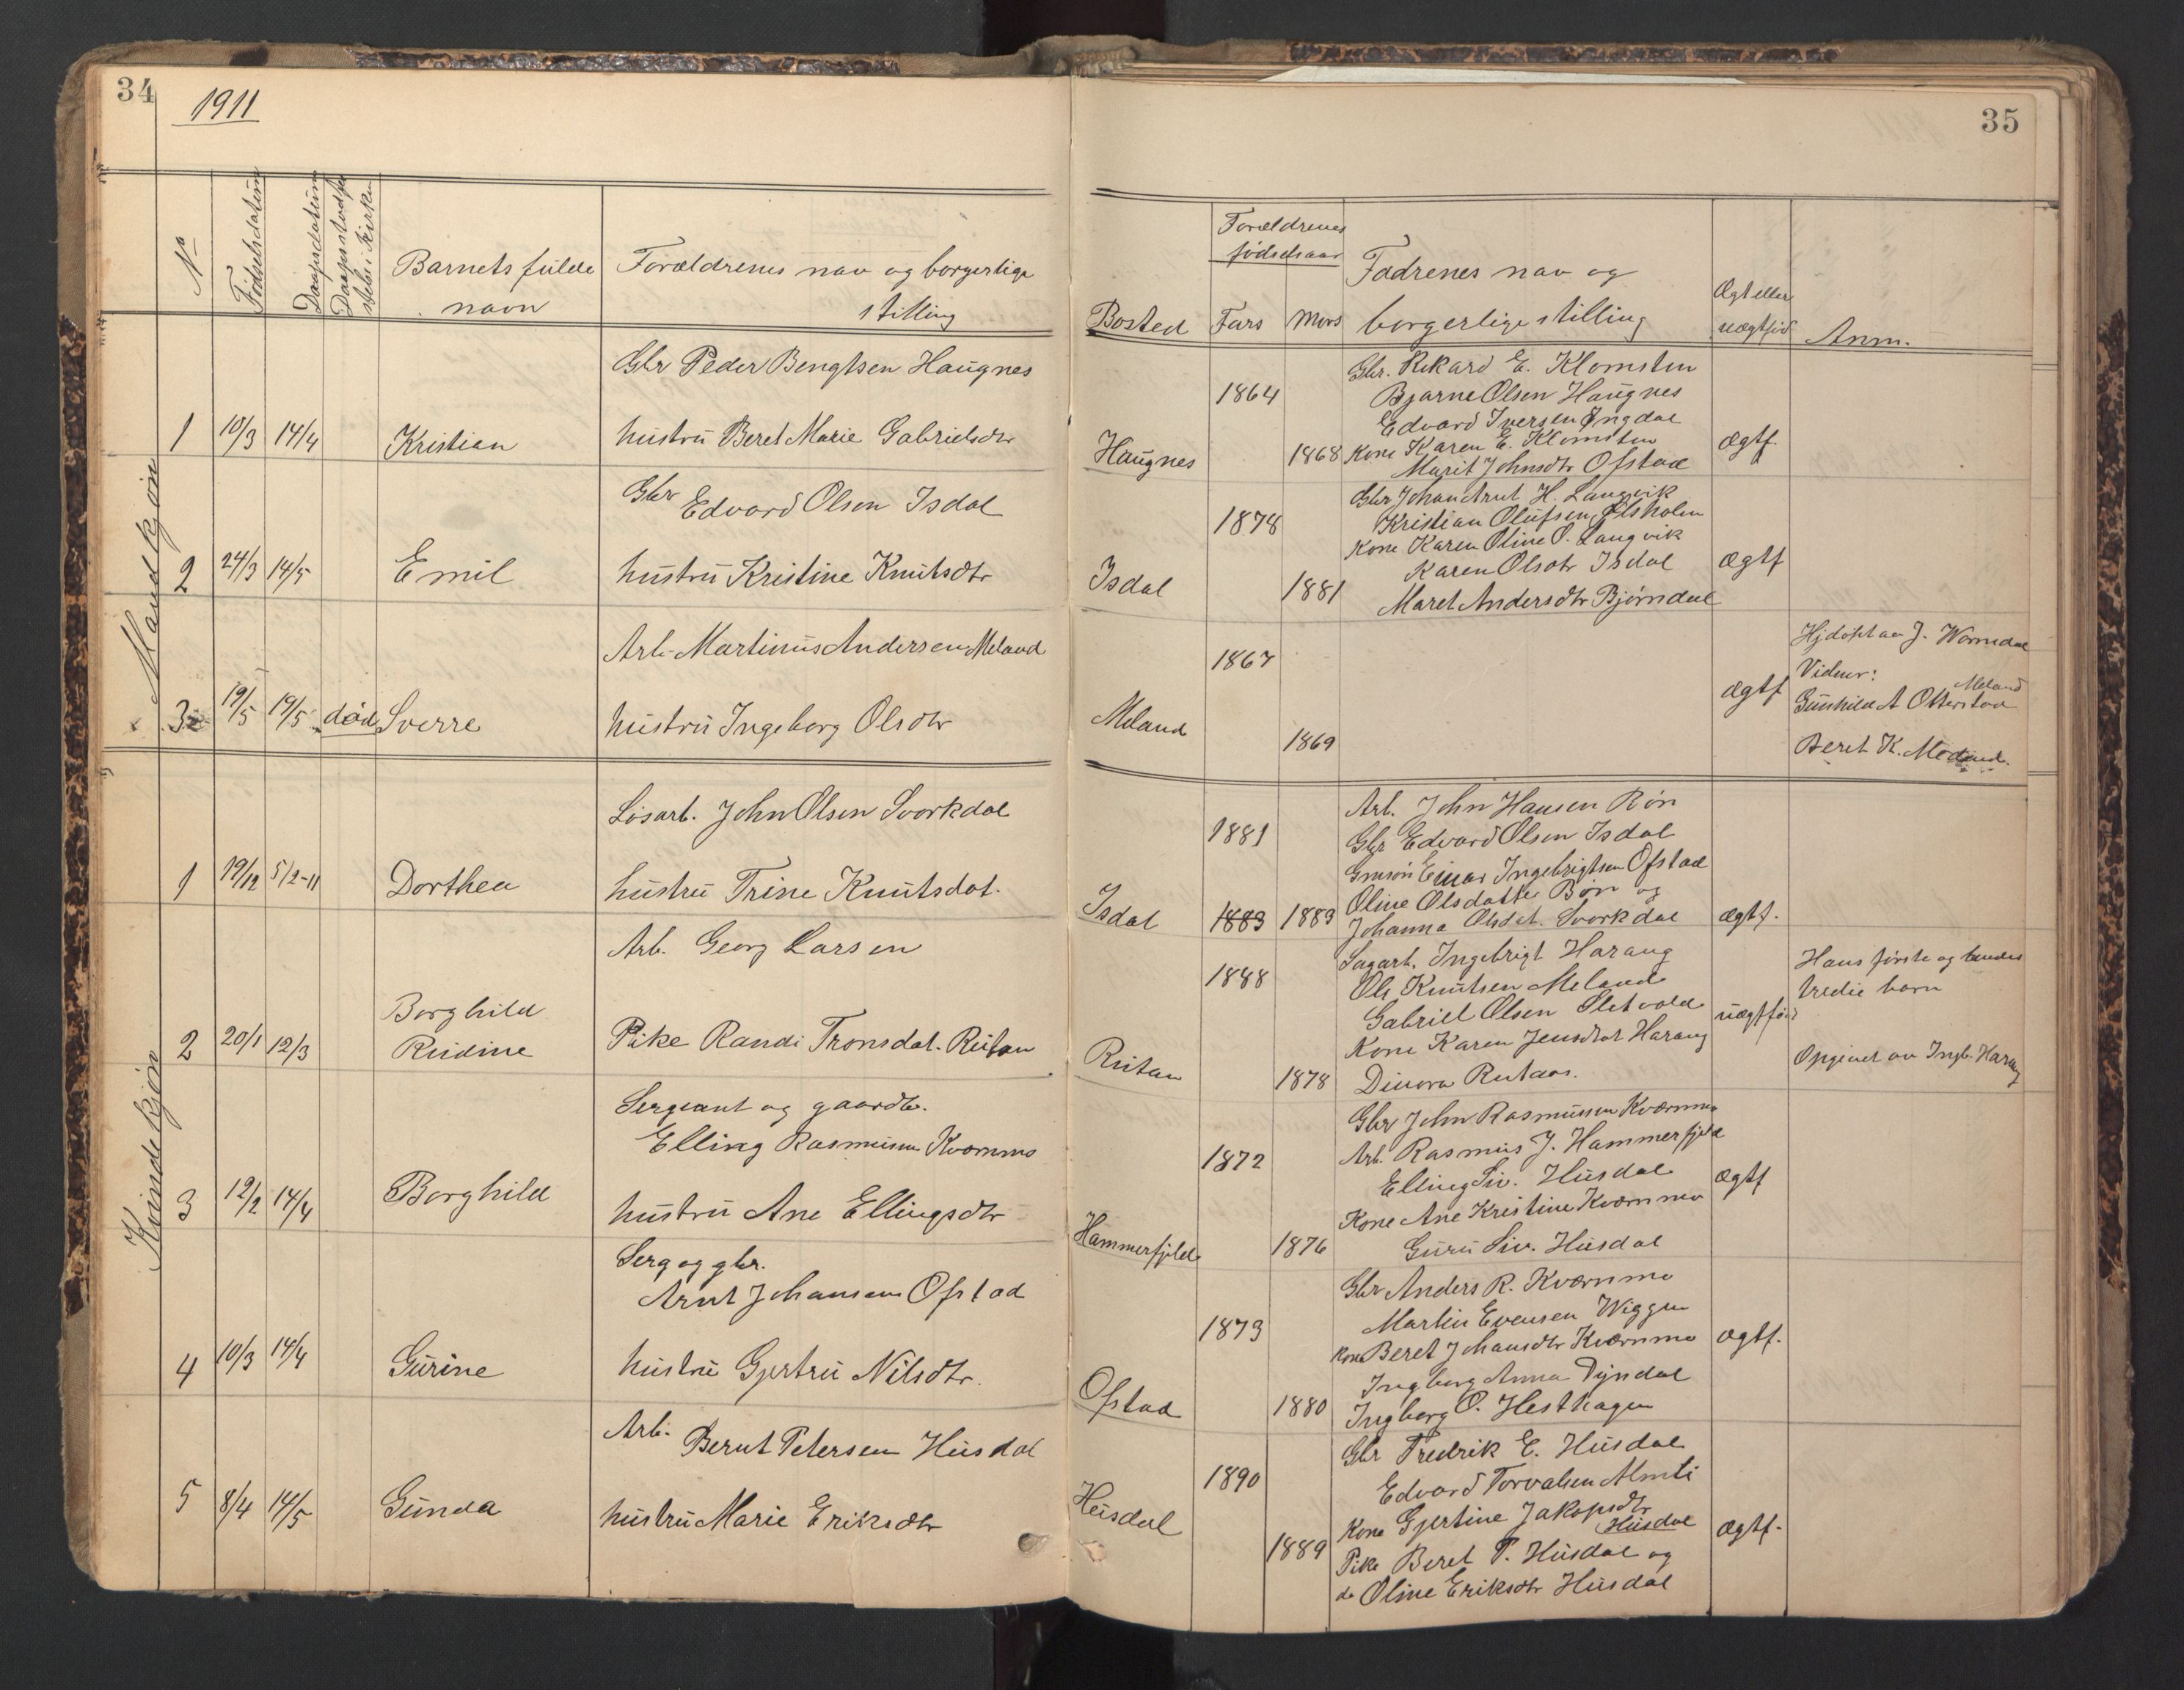 34
1911
No
Fødselsdatum
Daapsdatum
Daapsstadf.
stelse i Kirken
Barnets fulde
navn
Forældrenes nav og borgerlige
stilling
Mandkjøn
Gbr Peder Bengtsen Haugnes
1 10/3 14/4 Kristian hustru Beret Marie Gabrielsdtr
Gbr Edvard Olsen Isdal
2 24/3 14/5 Emil hustru Kristine Knutsdtr
Arb. Martinus Andersen Meland
3 19/5 19/5 død Sverre hustru Ingeborg Olsdtr
Kvindekjøn
Løsarb. John Olsen Svorkdal
1 19/12 5/2-11 Dorthea hustru Trine Knutsdat.
Arb. Georg Larsen
Borghild
2 20/1 12/3 Rudine Pike Randi Tronsdat. Rutan
Sergeant og gaardb.
Elling Rasmussen Kvernmo
3 12/2 14/4 Borghild hustru Ane Ellingsdtr
Serg og gbr.
Arnt Johansen Ofstad
4 10/3 14/4 Gurine hustru Gjertru Nilsdtr.
Arb. Bernt Petersen Husdal
5 8/4 14/5 Gunda hustru Marie Eriksdtr
35
Forældrenes
fødselsaar
Bosted Fars Mors
Fadrenes nav og
borgerlige stilling
Ægt eller
uægtfød
Anm.
Gbr. Rikard E. Klomsten
1864 Bjarne Olsen Haugnes
Edvard Iversen Yngdal
Haugnes 1868 Kone Karen E. Klomsten Ægtf.
Marit Johnsdtr Ofstad
Gbr Johan Arnt H. Langvik
1878 Kristian Olufsen Elsholm
Kone Karen Oline O. Langvik
Isdal Karen Olsdtr Isdal Ægtf
1881 Maret Andersdtr Bjørndal
1867 Hjdøpt av J. Wormdal
Vidner:
Meland
Meland Ægtf Gunhild A Otterstad
1869 Beret K. Meland.
Arb. John Hansen Bøn
1881 Gbr Edvard Olsen Isdal
Grmsøn Einar Ingebrigtsen Ofstad
Oline Olsdatter Bøn og
Isdal 1883 1883 Johanna Olsdat. Svorkdal ægtf.
Sagarb. Ingebrigt Harang
1888 Ole Knutsen Meland Hans første og hendes
tredie barn
Gabriel Olsen Sletvold uægtfød
Kone Karen Jensdtat Harang
Rutan 1878 Dinora Rutaas. Opgivet av Ingb. Harang
Gbr John Rasmussen Kvernmo
1872 Arb. Rasmus J. Hammerfjeld
Elling Siv. Husdal Ægtf
Kone Ane Kristine Kvernmo
Hammerfjeld 1876 Guru Siv. Husdal
Gbr Anders R. Kværnmo
Martin Evensen Wiggen
1873 Kone Beret Johansdtr Kvernmo Ægtf.
Ingborg Anna Dyndal
Ofstad 1880 Ingborg O. Hesthagen
Gbr Fredrik E. Husdal
1890 Edvard Torvalsen Almli
Husdal Kone Gjertine Jakopsdtr
Husdal Ægtf.
1889 Pike Beret P. Husdal og
do Oline Eriksdtr Husdal